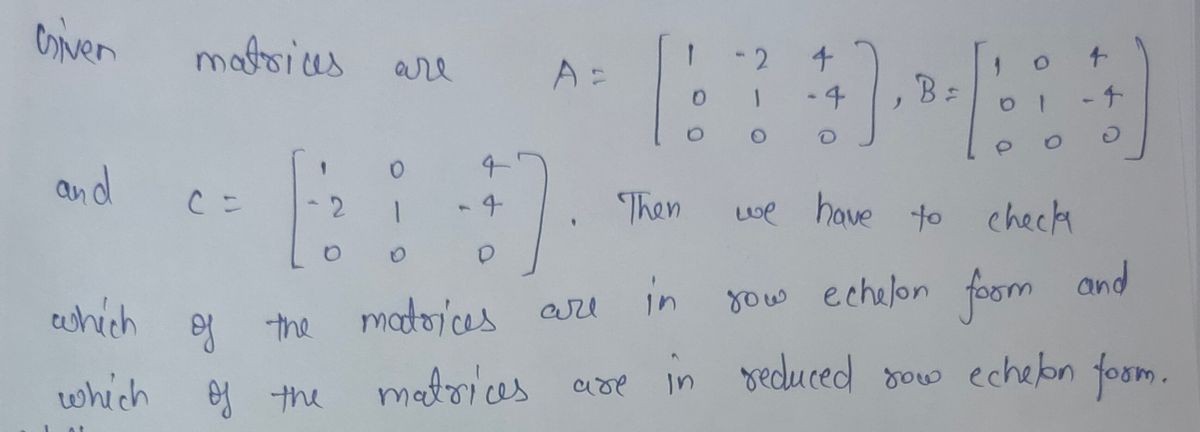 Given matrices are A = [1 -2 4; 0 1 -4; 0 0 0], B = [1 0 4; 0 1 -4; 0 0 0]
and C = [1 0 4; -2 1 -4; 0 0 0]. Then we have to check
which of the matrices are in row echelon form and
which of the matrices are in reduced row echelon form.